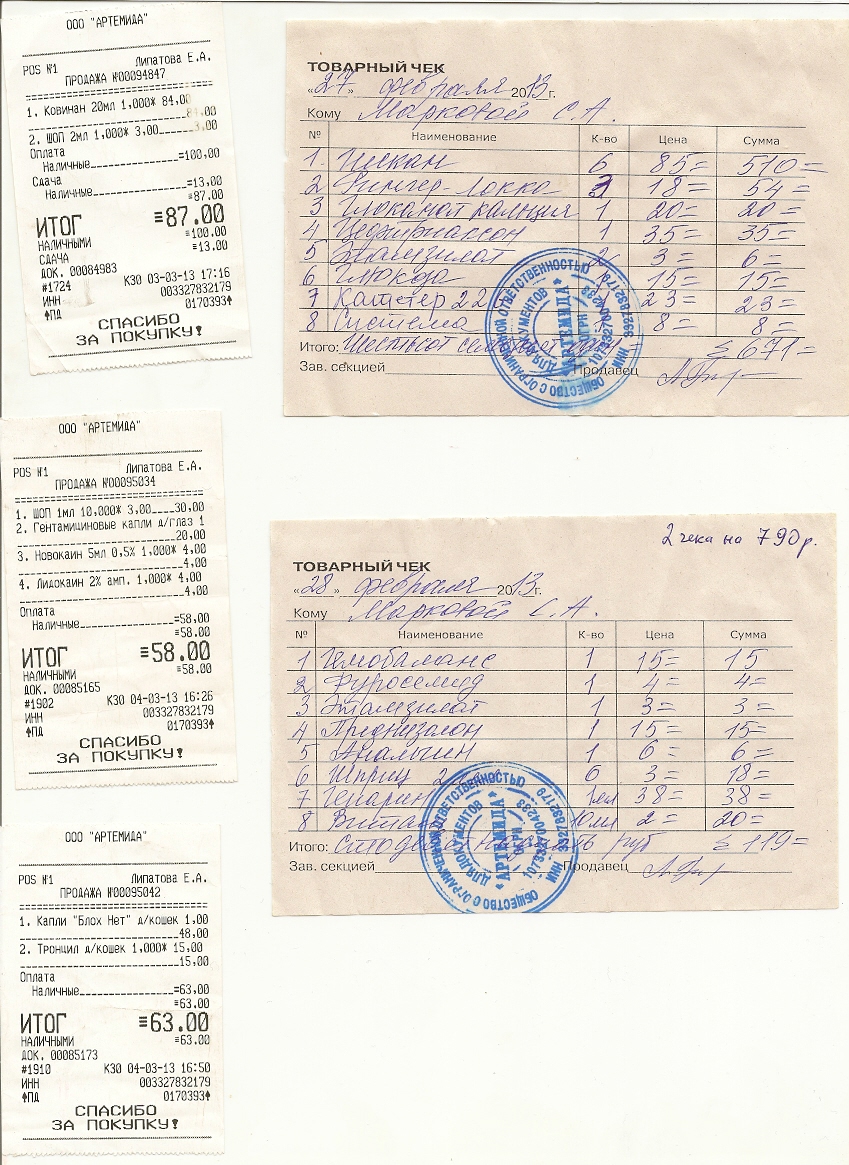 ООО "АРТЕМИДА"
POS №1 Липатова Е.А.
ПРОДАЖА №00094847
1. Ковинан 20мл 1,000* 84,00
84,00
2. ШОП 2мл 1,000* 3,00
3,00
Оплата
Наличные =100,00
Сдача
Наличные =13,00
≡87.00
ИТОГ ≡87.00
НАЛИЧНЫМИ ≡100.00
СДАЧА ≡13.00
ДОК. 00084983
#1724 К30 03-03-13 17:16
ИНН 003327832179
ПД 0170393
СПАСИБО
ЗА ПОКУПКУ!
ООО "АРТЕМИДА"
POS №1 Липатова Е.А.
ПРОДАЖА №00095034
1. ШОП 1мл 10,000* 3,00 30,00
2. Гентамициновые капли д/глаз 1
20,00
3. Новокаин 5мл 0,5% 1,000* 4,00
4,00
4. Лидокаин 2% амп. 1,000* 4,00
4,00
Оплата
Наличные =58,00
≡58.00
ИТОГ ≡58.00
НАЛИЧНЫМИ ≡58.00
ДОК. 00085165
#1902 К30 04-03-13 16:26
ИНН 003327832179
ПД 0170393
СПАСИБО
ЗА ПОКУПКУ!
ООО "АРТЕМИДА"
POS №1 Липатова Е.А.
ПРОДАЖА №00095042
1. Капли "Блох Нет" д/кошек 1,00
48,00
2. Тронцил д/кошек 1,000* 15,00
15,00
Оплата
Наличные =63,00
≡63.00
ИТОГ ≡63.00
НАЛИЧНЫМИ ≡63.00
ДОК. 00085173
#1910 К30 04-03-13 16:50
ИНН 003327832179
ПД 0170393
СПАСИБО
ЗА ПОКУПКУ!
ТОВАРНЫЙ ЧЕК
«27» февраля 2013г.
Кому Марковой С.А.
№ Наименование К-во Цена Сумма
1. 6 85= 510=
2 Рингер-Локка 3 18= 54=
3 Глюканат кальция 1 20= 20=
4 Цефтриаксон 1 35= 35=
5 Этамзилат 2 3= 6=
6 1 15= 15=
7 Катетер 22 1 23= 23=
8 Система 1 8= 8=
Итого: Шестьсот семьдесят один Σ 671=
Зав. секцией Продавец
ОБЩЕСТВО С ОГРАНИЧЕННОЙ ОТВЕТСТВЕННОСТЬЮ
"АРТЕМИДА"
ДЛЯ ДОКУМЕНТОВ
2 чека на 790р.
ТОВАРНЫЙ ЧЕК
«28» февраля 2013г.
Кому Марковой С.А.
№ Наименование К-во Цена Сумма
1 Гемобаланс 1 15= 15
2 Фуросемид 1 4= 4=
3 Этамзилат 1 3= 3=
4 Преднизалон 1 15= 15=
5 Анальгин 1 6= 6=
6 Шприц 2 6 3= 18=
7 Гепарин 1мл 38= 38=
8 10мл 2= 20=
Итого: Сто девятнадцать руб Σ 119=
Зав. секцией Продавец
ОБЩЕСТВО С ОГРАНИЧЕННОЙ ОТВЕТСТВЕННОСТЬЮ
"АРТЕМИДА"
ДЛЯ ДОКУМЕНТОВ